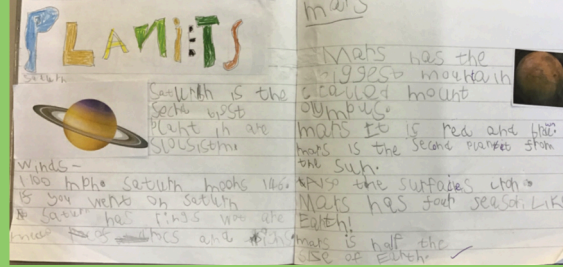 PLANETS
Saturn
Saturn is the
secnd bigst
planit in are
Winds~
1100 mph. Saturn moons 146.
If you went on Saturn
Saturn has rings wot are
and
mars
Mars has the
biggest mountain
called mount
Olympus.
mars It is red and
mars is the second planet from
the sun.
the surfaces
Mars has four seasons. Like
Earth!
mars is half the
size of Earth.